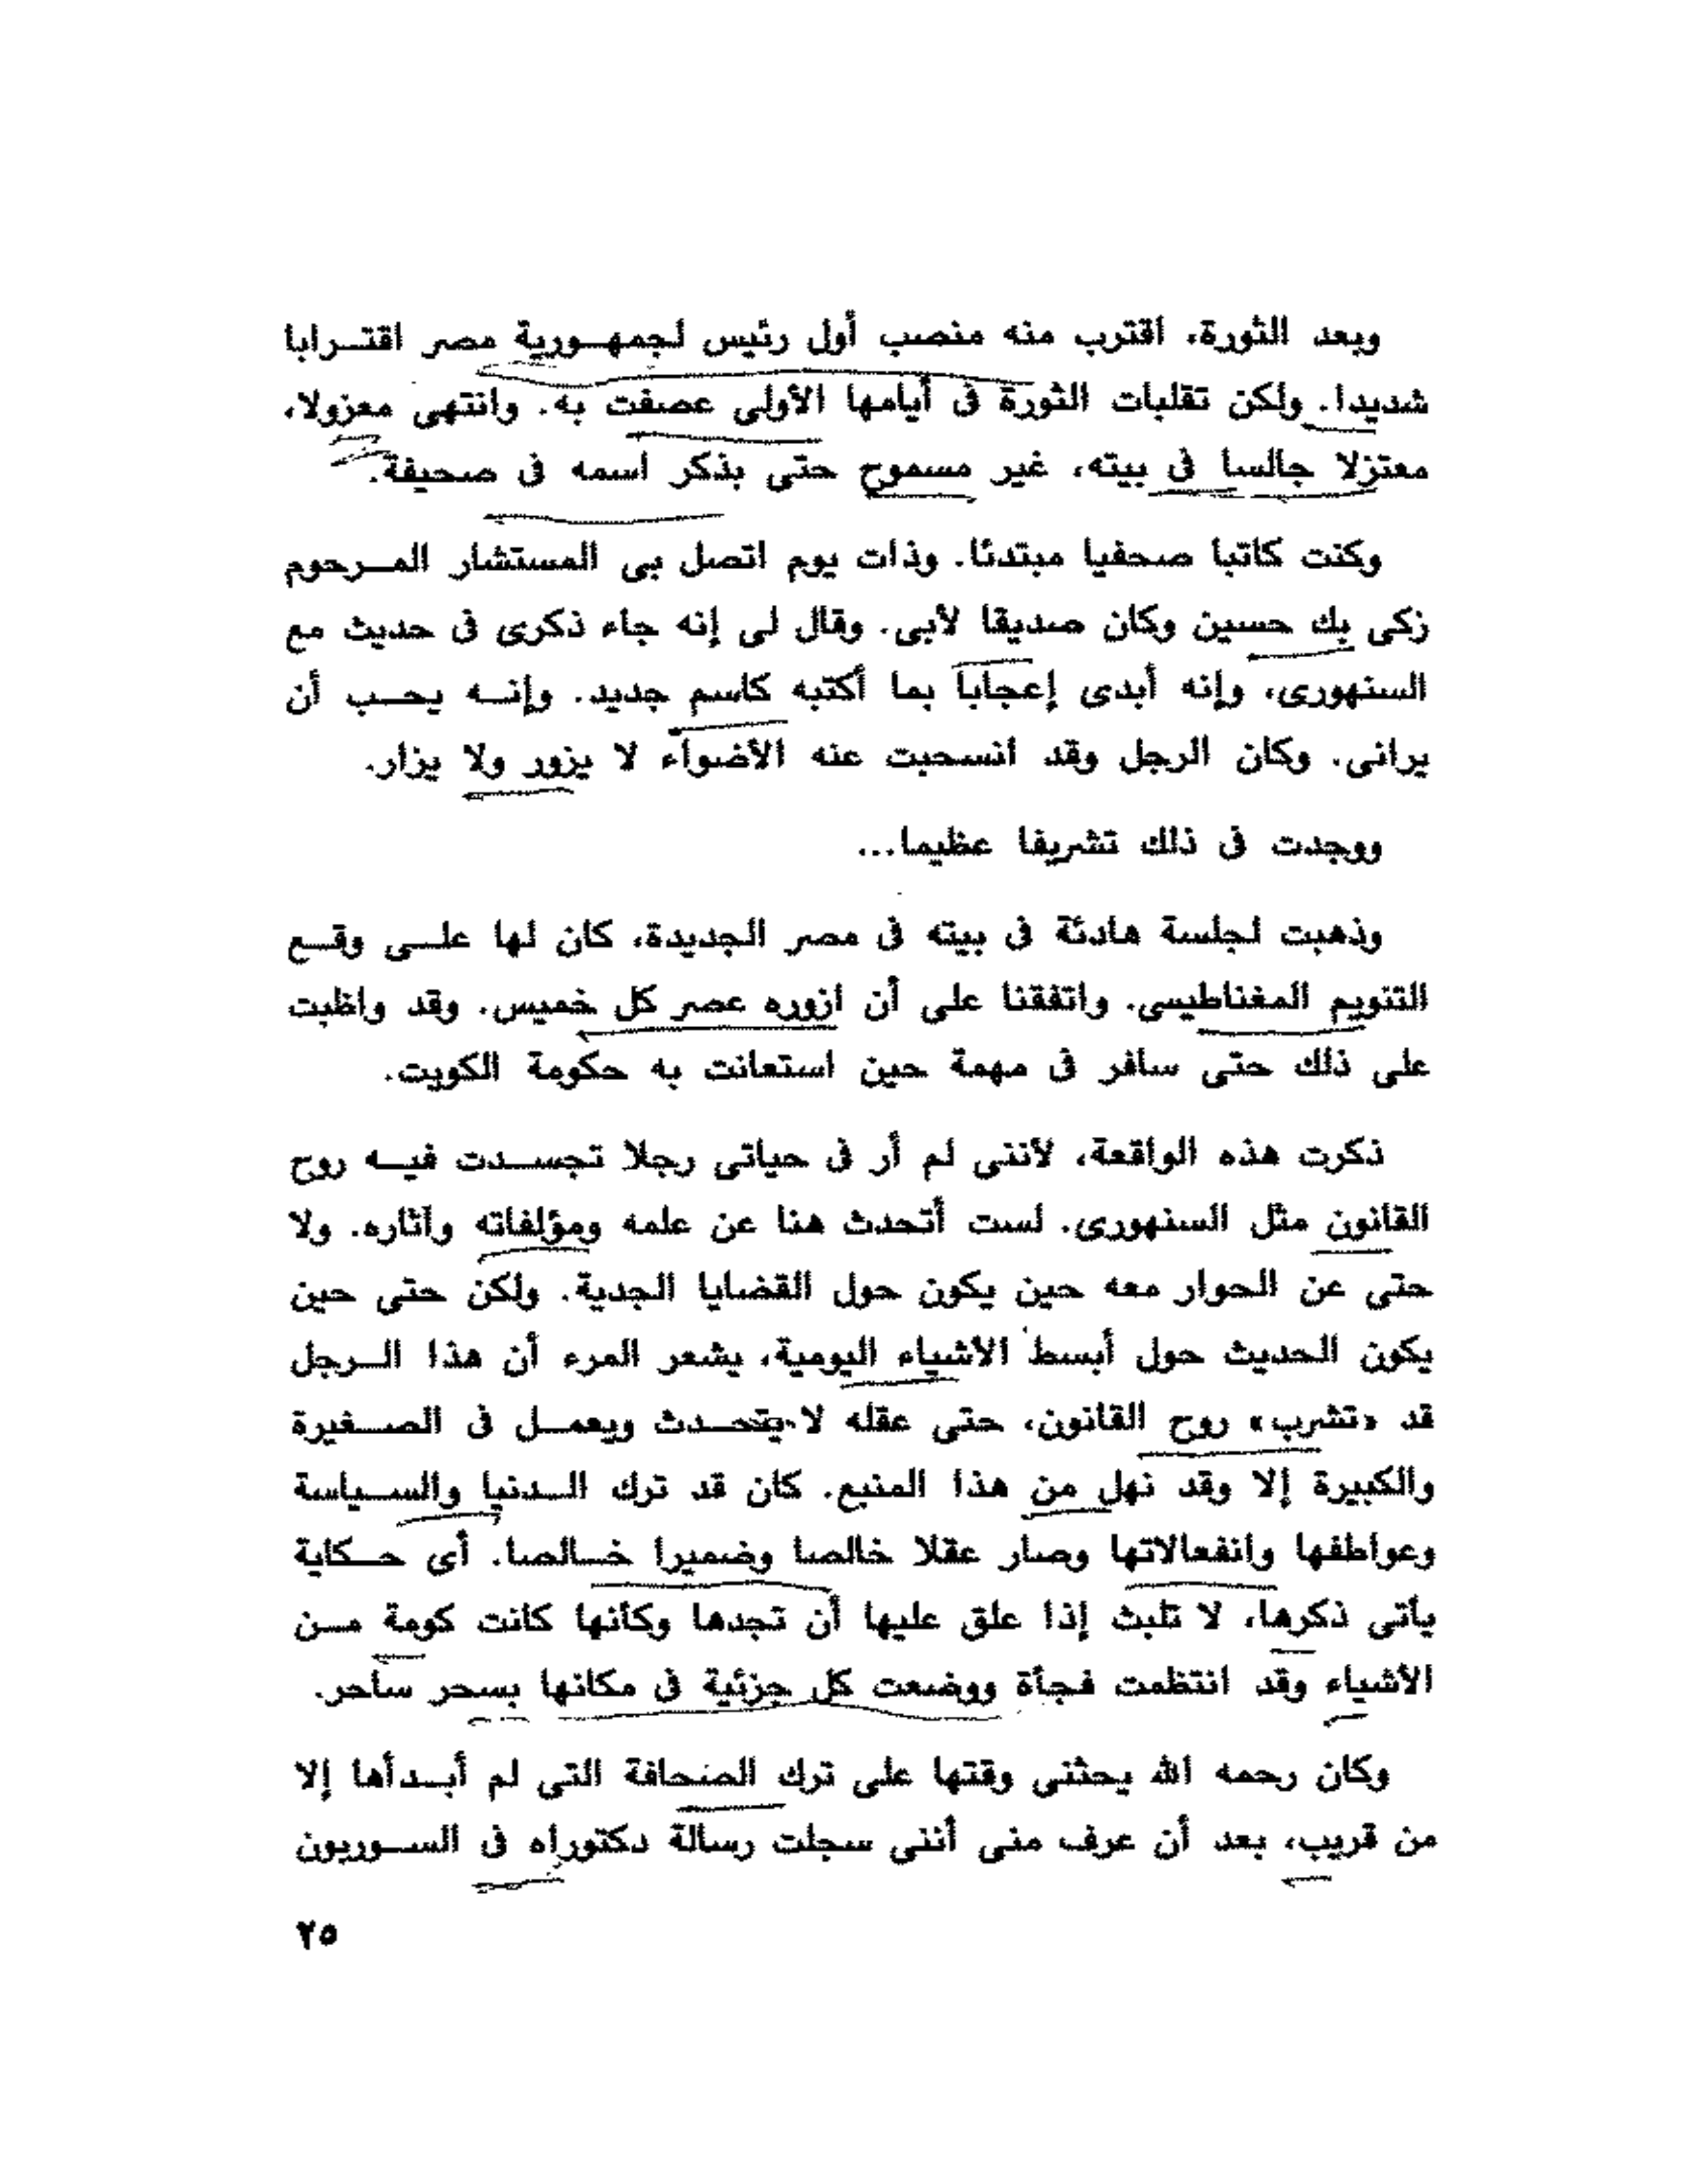 وبعد الثورة، اقترب منه منصب أول رئيس لجمهورية مصر اقترابا
شديدا. ولكن تقلبات الثورة فى أيامها الأولى عصفت به. وانتهى معزولا،
معتزلا جالسا فى بيته، غير مسموح حتى بذكر اسمه فى صحيفة.
وكنت كاتبا صحفيا مبتدئا. وذات يوم اتصل بى المستشار المرحوم
زكى بك حسين وكان صديقا لأبى. وقال لى إنه جاء ذكرى فى حديث مع
السنهورى، وإنه أبدى إعجابا بما أكتبه كاسم جديد. وإنه يحب أن
يرانى. وكان الرجل وقد انسحبت عنه الأضواء لا يزور ولا يزار.
ووجدت فى ذلك تشريفا عظيما...
وذهبت لجلسة هادئة فى بيته فى مصر الجديدة، كان لها على وقع
التنويم المغناطيسى. واتفقنا على أن ازوره عصر كل خميس. وقد واظبت
على ذلك حتى سافر فى مهمة حين استعانت به حكومة الكويت.
ذكرت هذه الواقعة، لأننى لم أر فى حياتى رجلا تجسدت فيه روح
القانون مثل السنهورى. لست أتحدث هنا عن علمه ومؤلفاته وآثاره. ولا
حتى عن الحوار معه حين يكون حول القضايا الجدية. ولكن حتى حين
يكون الحديث حول أبسط الاشياء اليومية، يشعر المرء أن هذا الرجل
قد «تشرب» روح القانون، حتى عقله لا يتحدث ويعمل فى الصغيرة
والكبيرة إلا وقد نهل من هذا المنبع. كان قد ترك الدنيا والسياسة
وعواطفها وانفعالاتها وصار عقلا خالصا وضميرا خالصا. أى حكاية
يأتى ذكرها، لا تلبث إذا علق عليها أن تجدها وكأنها كانت كومة من
الأشياء وقد انتظمت فجأة ووضعت كل جزئية فى مكانها بسحر ساحر.
وكان رحمه الله يحثنى وقتها على ترك الصحافة التى لم أبدأها إلا
من قريب، بعد أن عرف منى أننى سجلت رسالة دكتوراه فى السوربون
٢٥